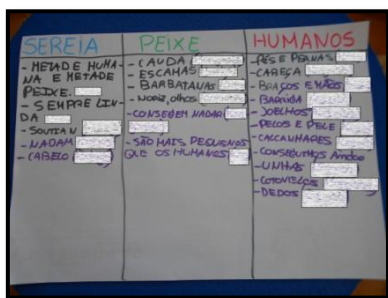 SEREIA
- METADE HUMA-
NA E METADE
PEIXE.
- SEMPRE LIN-
DA
- SOUTIAN
- NADAM
- CABELO
PEIXE
- CAUDA
- ESCAMAS
- BARBATANAS
- Nariz, olhos
- CONSEGEM NADAR
- SÃO MAIS PEQUENOS
QUE OS HUMANOS
HUMANOS
- PÉS E PERNAS
- CABEÇA
- BRAÇOS E MÃOS
- BARRIGA
- JOELHOS
- PELOS E PELE
- CALCANHARES
- CONSEGUIMOS Andar
- UNHAS
- COTOVELOS
- DEDOS